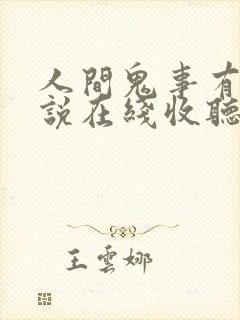 人間鬼事有
說在綫收聽
王雲娜